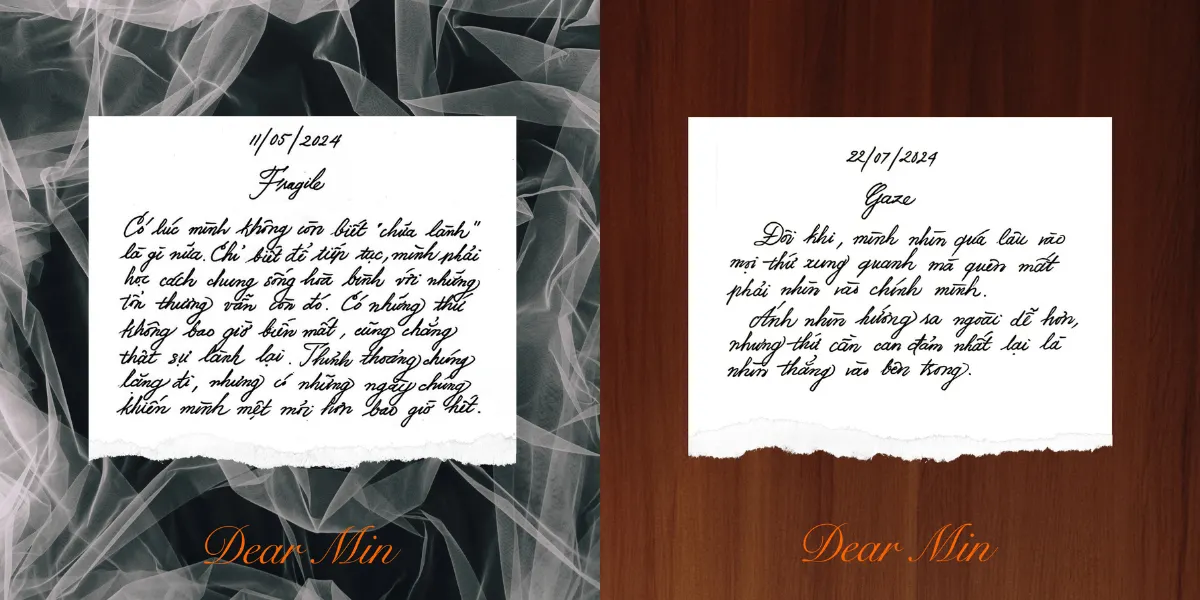 11/05/2024
Fragile
Có lúc mình không còn biết "chữa lành"
là gì nữa. Chỉ biết để tiếp tục, mình phải
học cách chung sống hoà bình với những
tổn thương vẫn còn đó. Có những thứ
không bao giờ biến mất, cũng chẳng
thật sự lành lại. Thỉnh thoảng chúng
lắng đi, nhưng có những ngày chúng
khiến mình mệt mỏi hơn bao giờ hết.
Dear Min
22/07/2024
Gaze
Đôi khi, mình nhìn quá lâu vào
mọi thứ xung quanh mà quên mất
phải nhìn vào chính mình.
Ánh nhìn hướng ra ngoài dễ hơn,
nhưng thứ cần can đảm nhất lại là
nhìn thẳng vào bên trong.
Dear Min